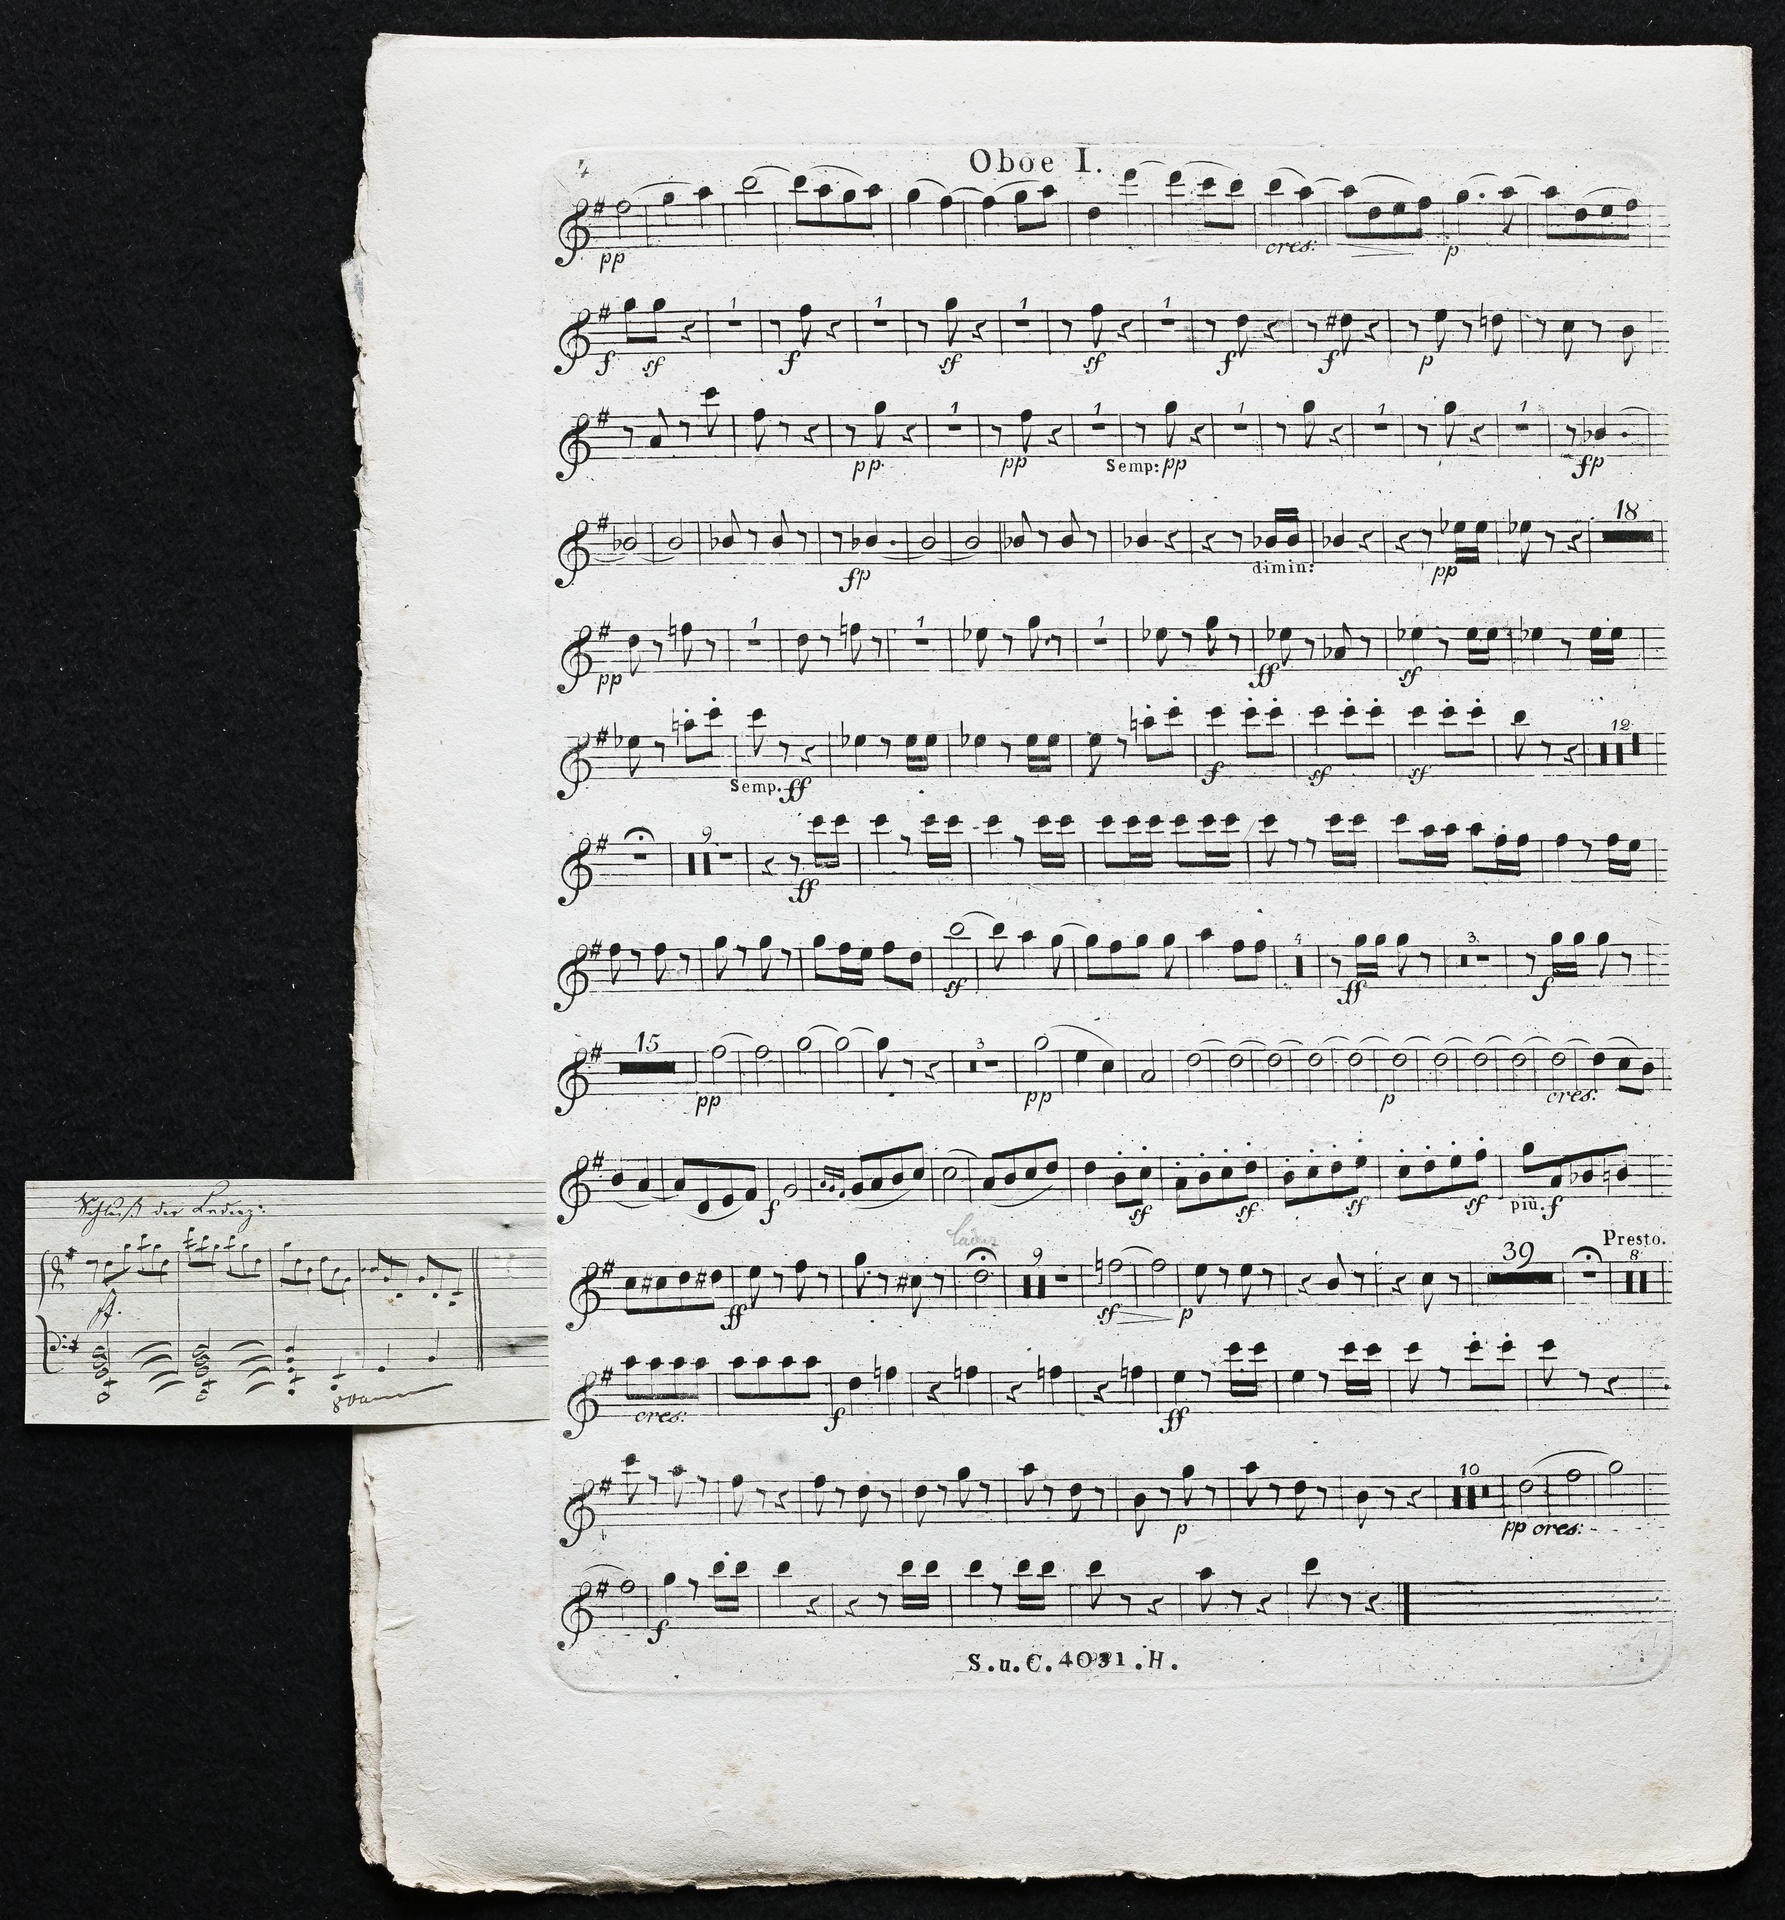 4
Oboe I.
pp cres: p
1 1 1 1
f sf f sf sf f f p
1 1 1 1 1
pp. pp Semp: pp fp
18
fp dimin: pp
1 1 1
pp ff sf
12
Semp. ff f sf sf
9
ff
4 3
sf ff f
15 3
pp pp p cres:
f sf sf sf sf più. f
Schluß der Cadenz:
ff.
8va
Presto.
9 39 8
ff sf p
cres: f ff
10
p pp cres:
f
S.u.C.4031.H.